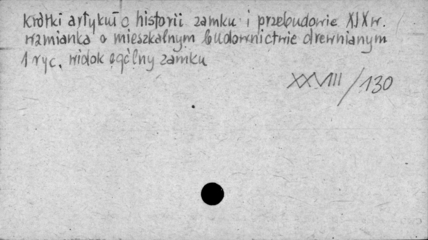 krótki artykuł o historii zamku i przebudowie XIX w.
wzmianka o mieszkalnym budownictwie drewnianym
1 ryc. widok ogólny zamku
XXVIII/130